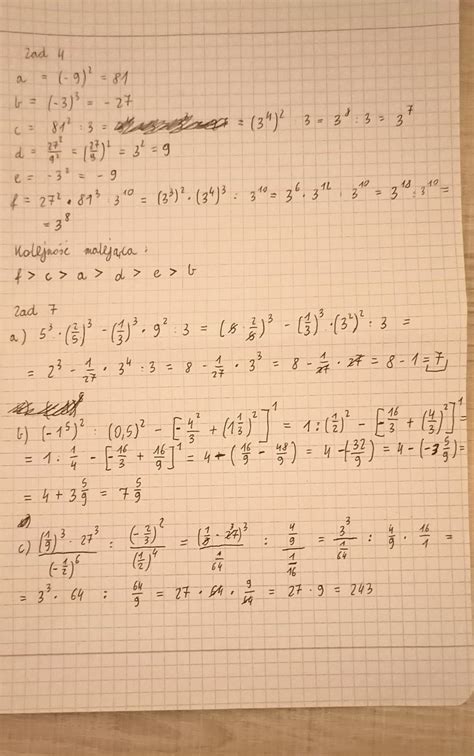 Zad 4
a = (-9)² = 81
b = (-3)³ = -27
c = 81² : 3 = = (3⁴)² 3 = 3⁸ : 3 = 3⁷
d = 27²/9² = (27/9)² = 3² = 9
e = -3² = -9
f = 27² · 81³ : 3¹⁰ = (3³)² · (3⁴)³ : 3¹⁰ = 3⁶ · 3¹² : 3¹⁰ = 3¹⁸ : 3¹⁰ =
= 3⁸
Kolejność malejąca :
f > c > a > d > e > b
Zad 7
a) 5³ · (2/5)³ - (1/3)³ · 9² : 3 = (5 · 2/5)³ - (1/3)³ · (3²)² : 3 =
= 2³ - 1/27 · 3⁴ : 3 = 8 - 1/27 · 3³ = 8 - 1/27 · 27 = 8 - 1 = 7
b) (-1⁵)² : (0,5)² - [-4²/3 + (1 1/3)²]¹ = 1 : (1/2)² - [-16/3 + (4/3)²]¹ =
= 1 : 1/4 - [-16/3 + 16/9]¹ = 4 - (16/9 - 48/9) = 4 - (-32/9) = 4 - (-3 5/9) =
= 4 + 3 5/9 = 7 5/9
c) (1/9)³ · 27³/(-1/2)⁶ : (-2/3)²/(1/2)⁴ = (1/9 · 27³)³/1/64 : 4/9/1/16 = 3³/1/64 : 4/9 · 16/1 =
= 3³ · 64 : 64/9 = 27 · 64 · 9/64 = 27 · 9 = 243